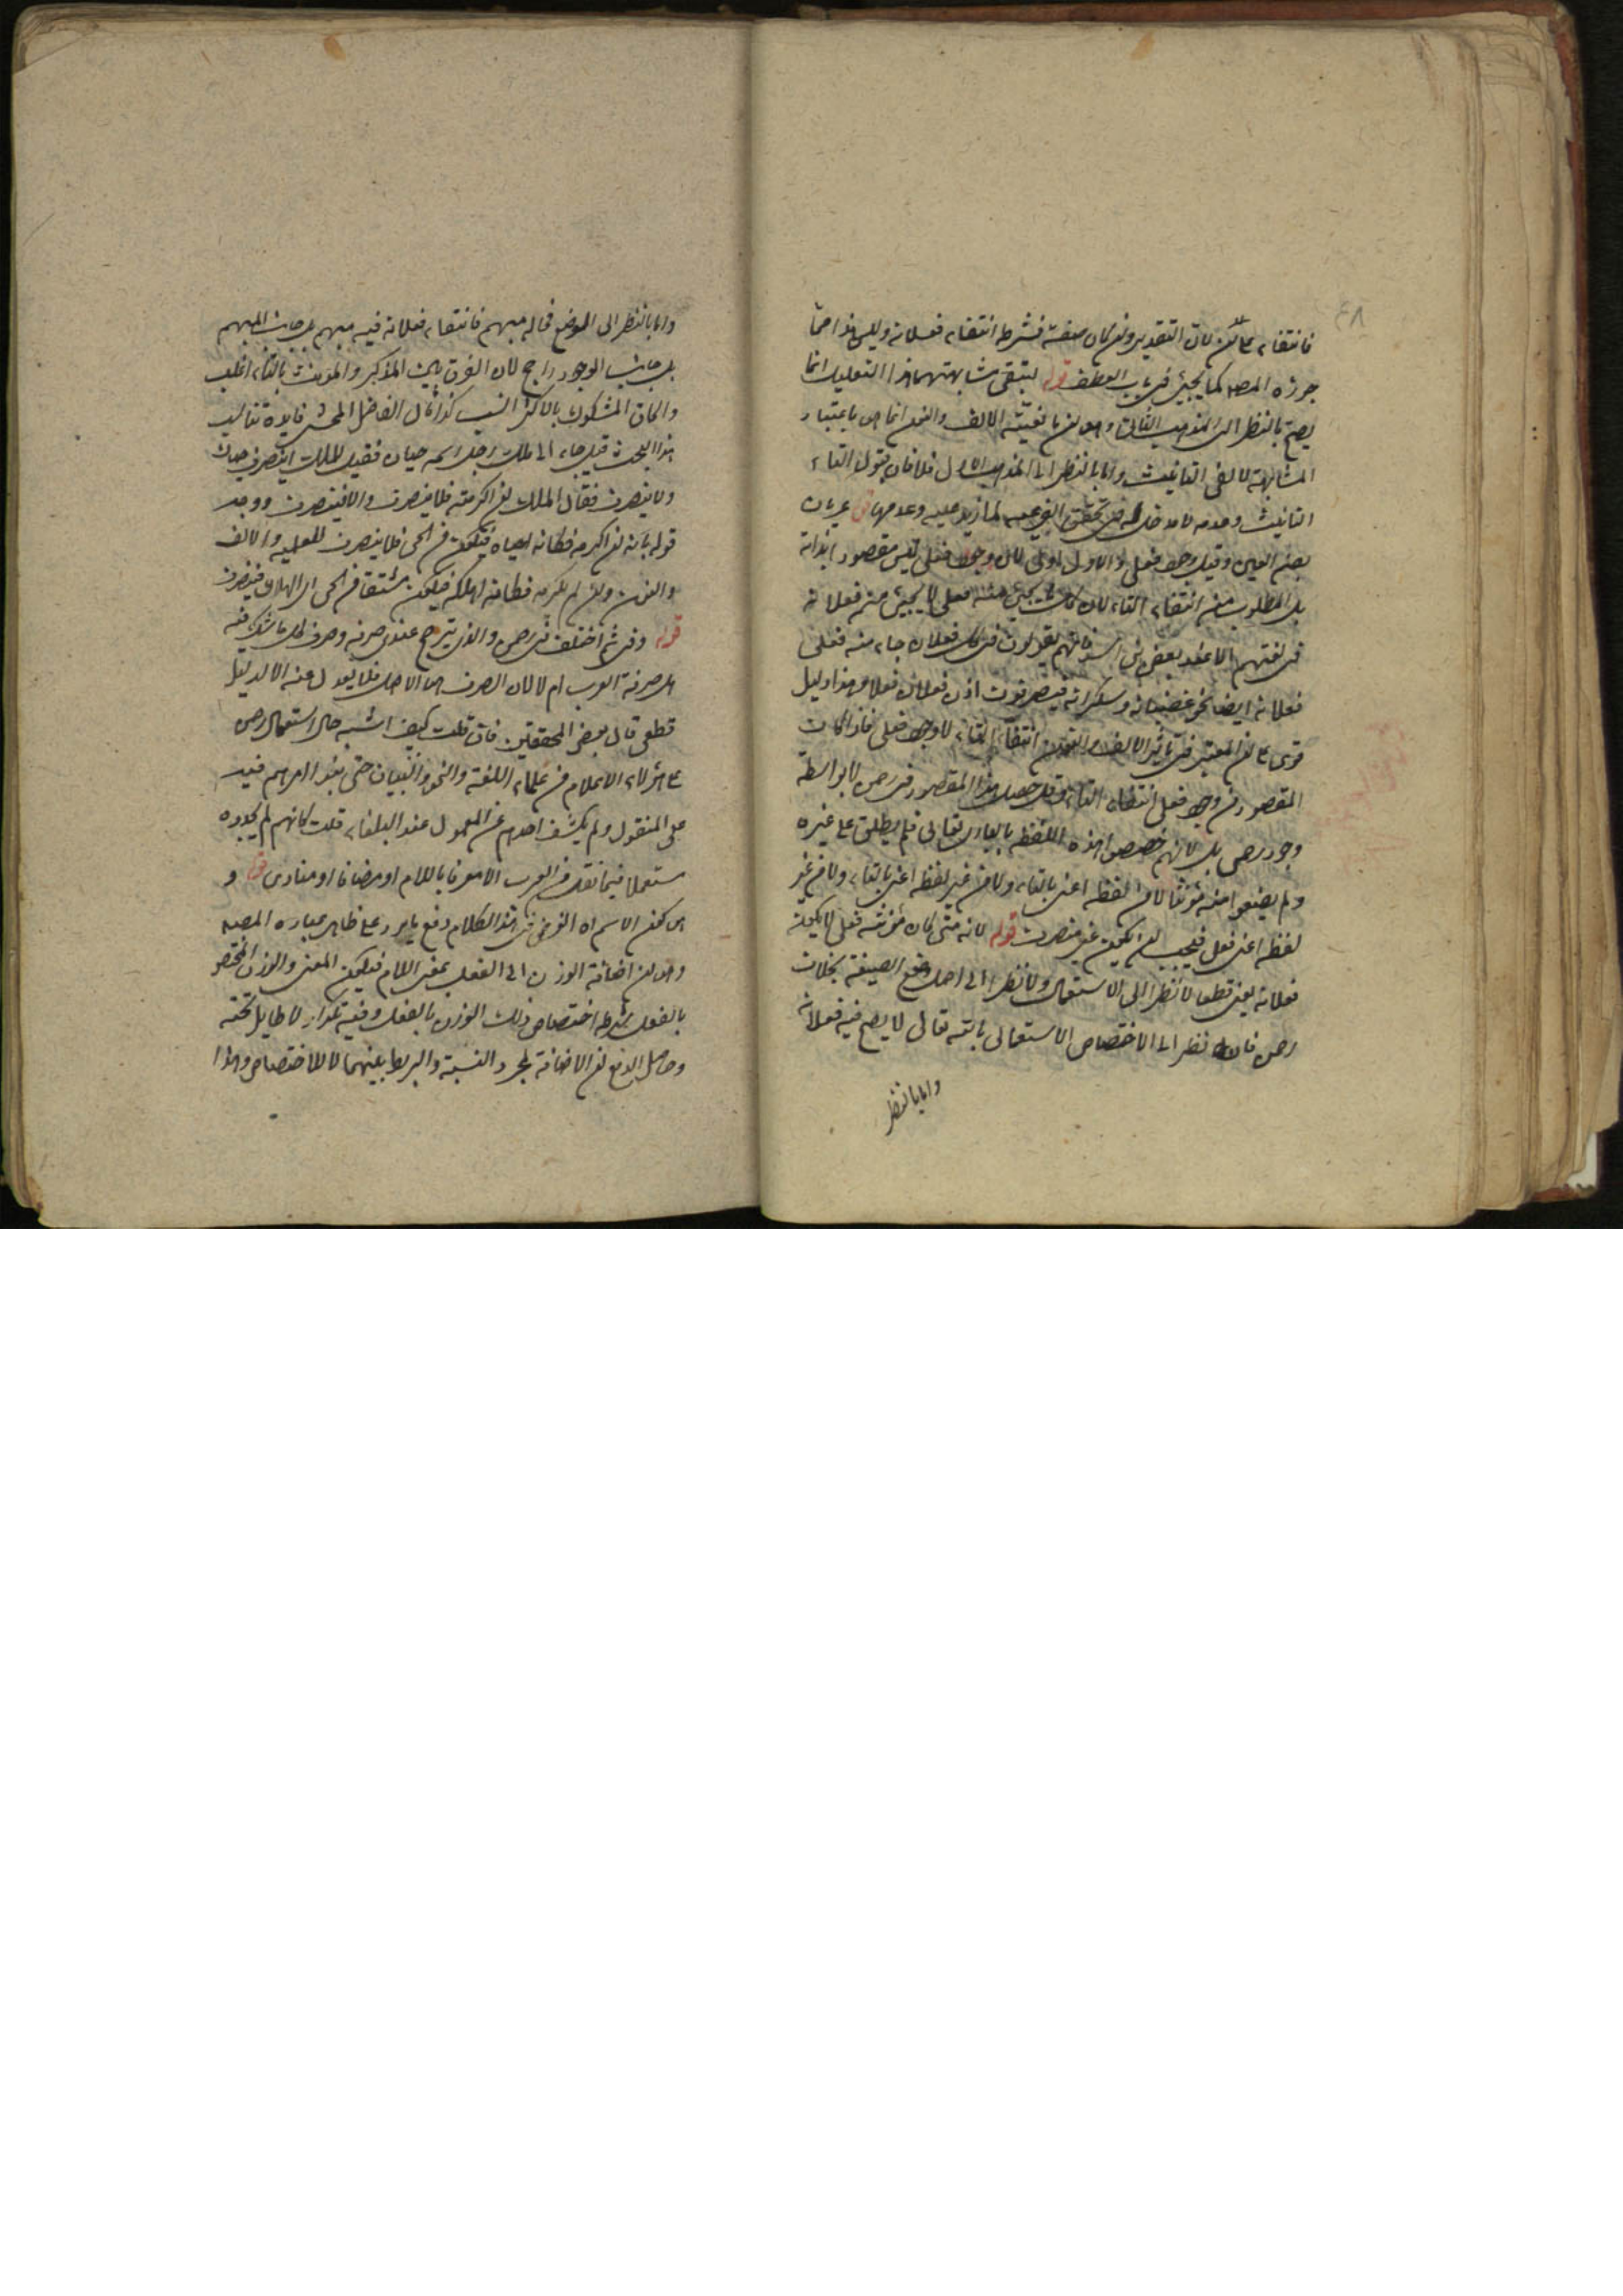 ٤٨
فانتفاء لكن كان التقدير وان كان صفة فشرطه انتفاء فعلانة وليس هذا مما
جوزه المصه كما يجيئ في باب العطف قوله لتبقى مشابهتهما هذا التعليل انما
يصح بالنظر الى المذهب الثانى وهو ان مانعية الالف والنون انما هى باعتبار
المشابهة لالفى التانيث واما بالنظر الى المذهب الاول فلا فان قبول التاء
التانيث وعدمه لا مدخل له فى تحقق الفرعية لمازيد عليه وعدمها عريان
بضم العين وقيل وجود فعلى والاول اولى لان وجود فعلى ليس مقصودا بذاته
بل المطلوب منه انتفاء التاء لان كل ما يجيئ منه فعلى لا يجيئ منه فعلانة
فى لغتهم الا عند بعض بنى اسد فانهم يقولون فى كل فعلان جاء منه فعلى
فعلانة ايضا نحو غضبانة وسكرانة فيصرفون اذن فعلان فعلى وهذا دليل
قوى على ان المعتبر فى تاثير الالف والنون انتفاء التاء لا وجود فعلى فاذا كان
المقصود من وجود فعلى انتفاء التاء وقد حصل هذا المقصود فى رحمن لا بواسطة
وجود رحمى بل لانهم خصصوا هذه اللفظة بالبارى تعالى فلم يطلق على غيره
ولم يضعوا منه مؤنثا لا من لفظه اعنى بالتاء ولا من غير لفظه اعنى بالتاء ولا من غير
لفظه اعنى فعلى فيجب ان يكون غير منصرف قوله لانه متى كان مؤنثه فعلى لا يكون
فعلانة يعنى قطعا لا نظرا الى الاستعمال ولا نظرا الى اصل وضع الصيغة بخلاف
رحمن فانه نظرا الى الاختصاص الاستعمالى بالله تعالى لا يصح فيه فعلانة
واما بالنظر
واما بالنظر الى الوضع فحاله مبهم فانتفاء فعلانة فيه مبهم جانب المبهم
بل جانب الوجود راجح لان الفرق بين المذكر والمؤنث بالتاء اغلب
والحاق المشكوك بالاكثر انسب كذا قال الفاضل المحشى فايدة تناسب
هذا البحث قيل جاء الى ملك رجل اسمه حيان فقيل للملك اينصرف حيان
ولا ينصرف فقال الملك ان اكرمته فلا ينصرف والا فينصرف ووجه
قوله بانه ان اكرمه فكانه احياه فيكون من الحى فلا ينصرف للعلمية والالف
والنون وان لم يكرمه فكانه اهلكه فيكون مشتقا من الحين اى الهلاك فينصرف
قوله ومن ثم اختلف فى رحمن والذى يترجح عندى صرفه وصرف كل ما شك فيه
هل صرفه العرب ام لا لان الصرف هو الاصل فلا يعدل عنه الا لدليل
قطعى قال بعض المحققين فان قلت كيف اشتبه حال استعمال رحمن
على هؤلاء الاعلام من علماء اللغة والنحو والبيان حتى بنوا امرهم فيه
على المنقول ولم يكشف احدهم عن المعمول عند البلغاء قلت كانهم لم يجدوه
مستعملا فيما نقل من العرب الا معرفا باللام او مضافا او منادى قوله و
هو كون الاسم اه الغرض من هذا الكلام دفع ما يرد على ظاهر عبارة المصه
وهو ان اضافة الوزن الى الفعل بمعنى اللام فيكون المعنى والوزن المختص
بالفعل شرطه اختصاص ذلك الوزن بالفعل وفيه تكرار لا طايل تحته
وحاصل الدفع ان الاضافة لمجرد النسبة والربط بينهما لا للاختصاص وهذا